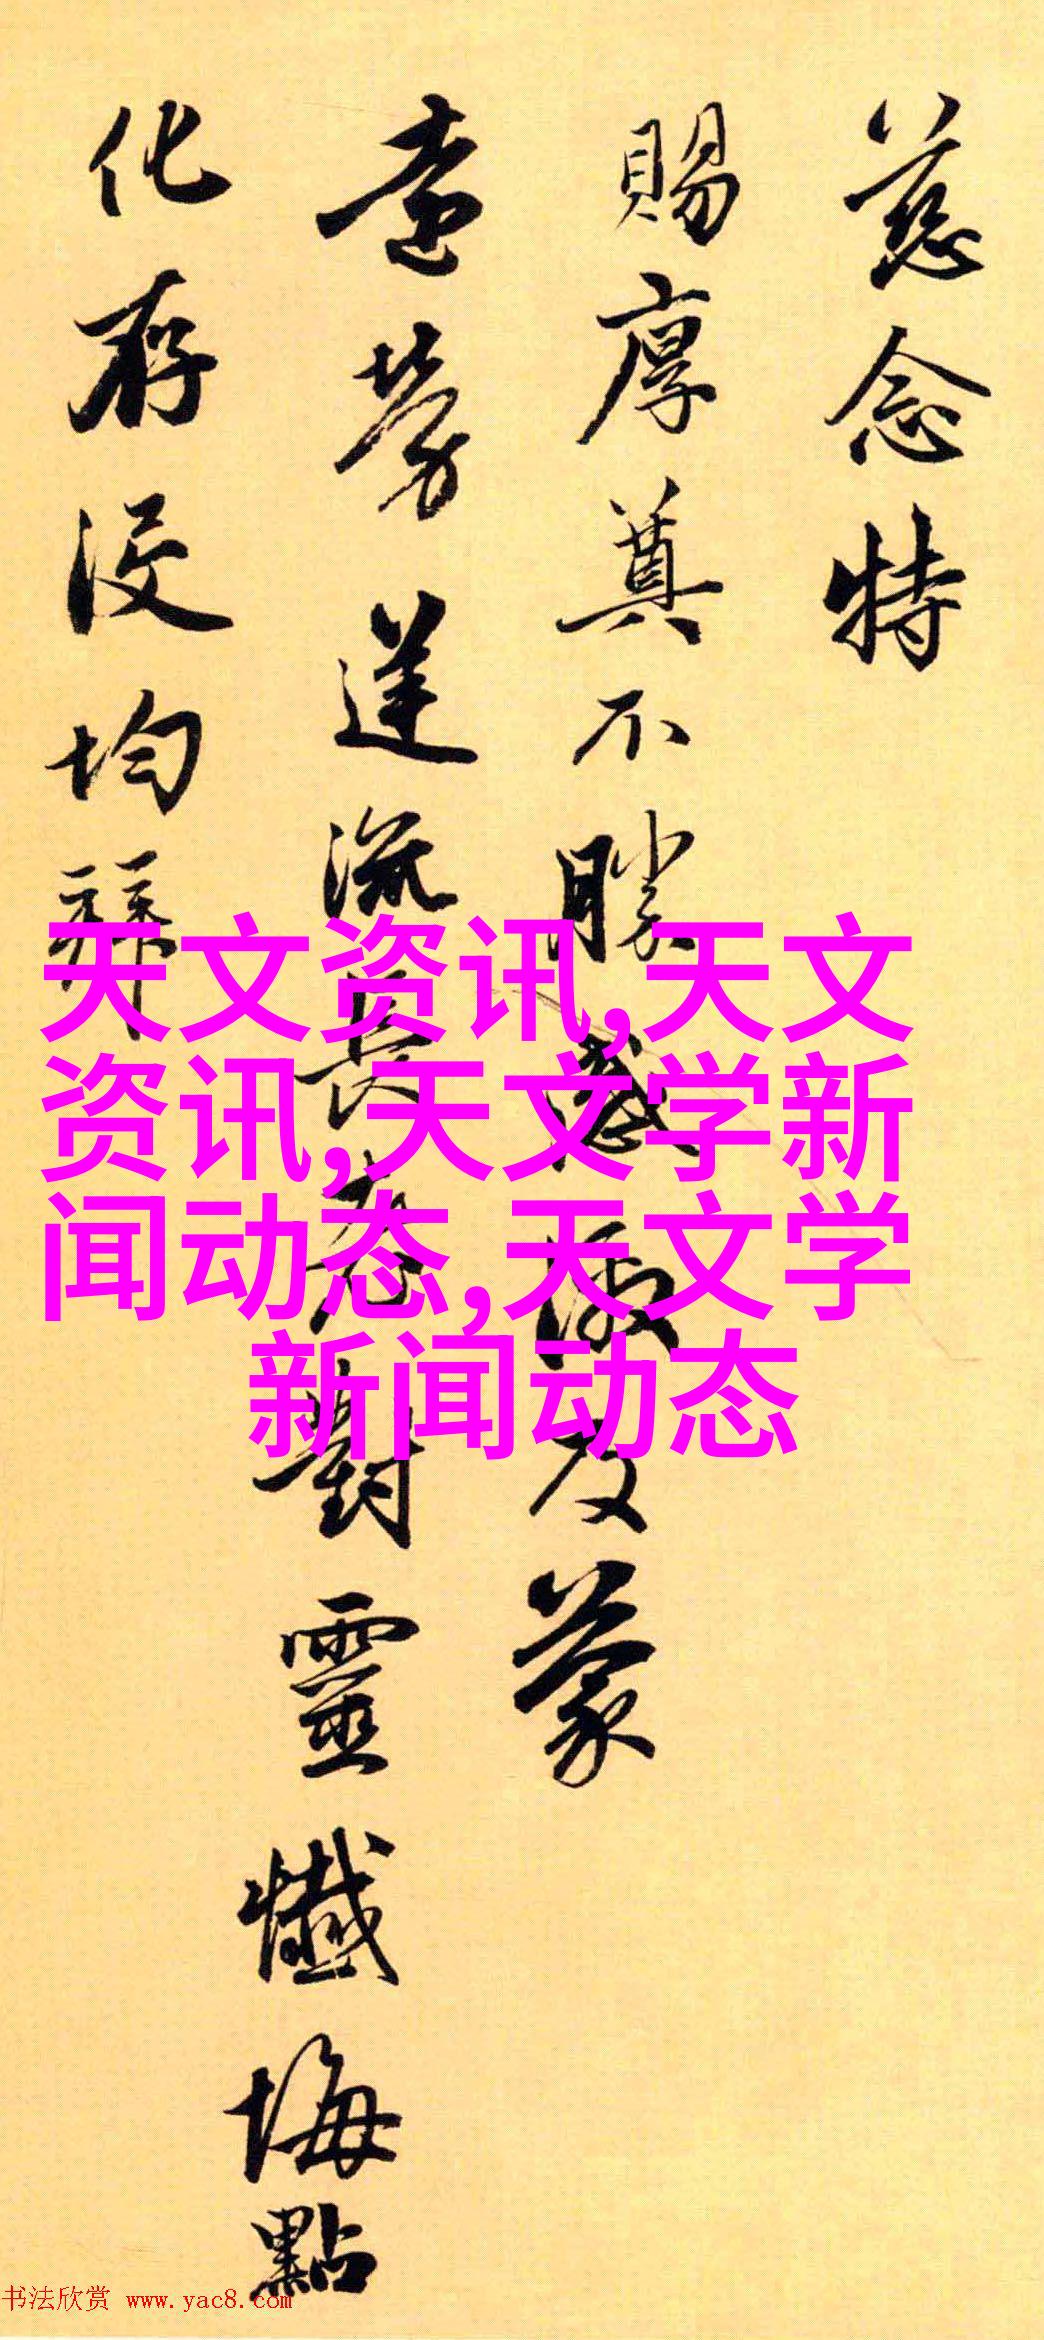 慈念特
賜厚奠不勝感激及蒙
勞達流長老對靈懺悔點
化存没均拜
天文资讯,天文
资讯,天文学新
闻动态,天文学
新闻动态
书法欣赏 www.yac8.com